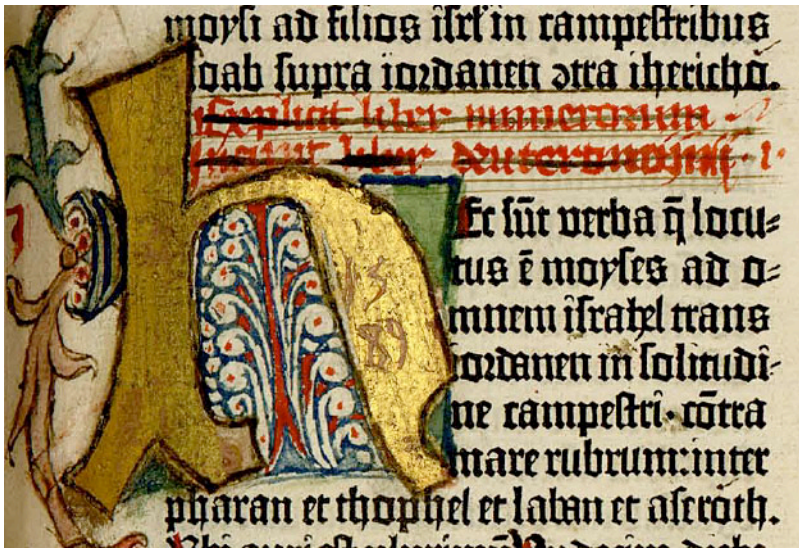 moysi ad filios isrl' in campestribus
oab supra iordanen ꝯtra ihericho.
Explicit liber numerorum
Incipit liber deuteronomii . 1 .
h Ec sūt verba q̄ locu⸗
tus ē moyses ad o⸗
mnem israhel trans
iordanen in solitudī⸗
ne campestri·cōtra
mare rubrum:inter
pharan et thophel et laban et aseroth.